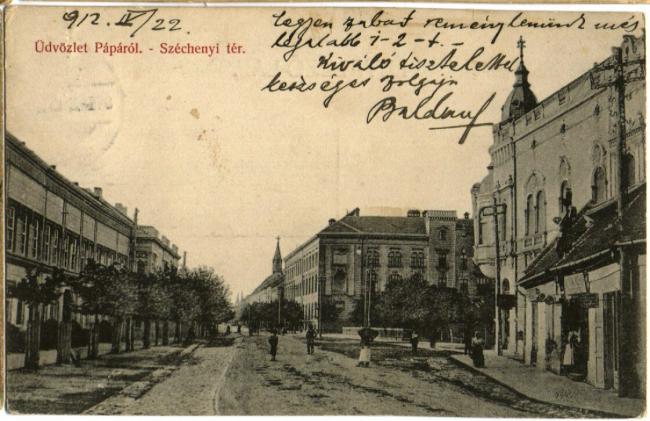 912. IV/22.
legyen szabad reménylenünk még
legalább 1-2-t. -
Kiváló tisztelettel
készséges szolgája
Üdvözlet Pápáról. - Széchenyi tér.